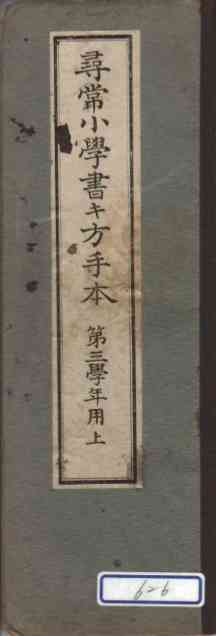 尋常小學書キ方手本 第三學年用上
626